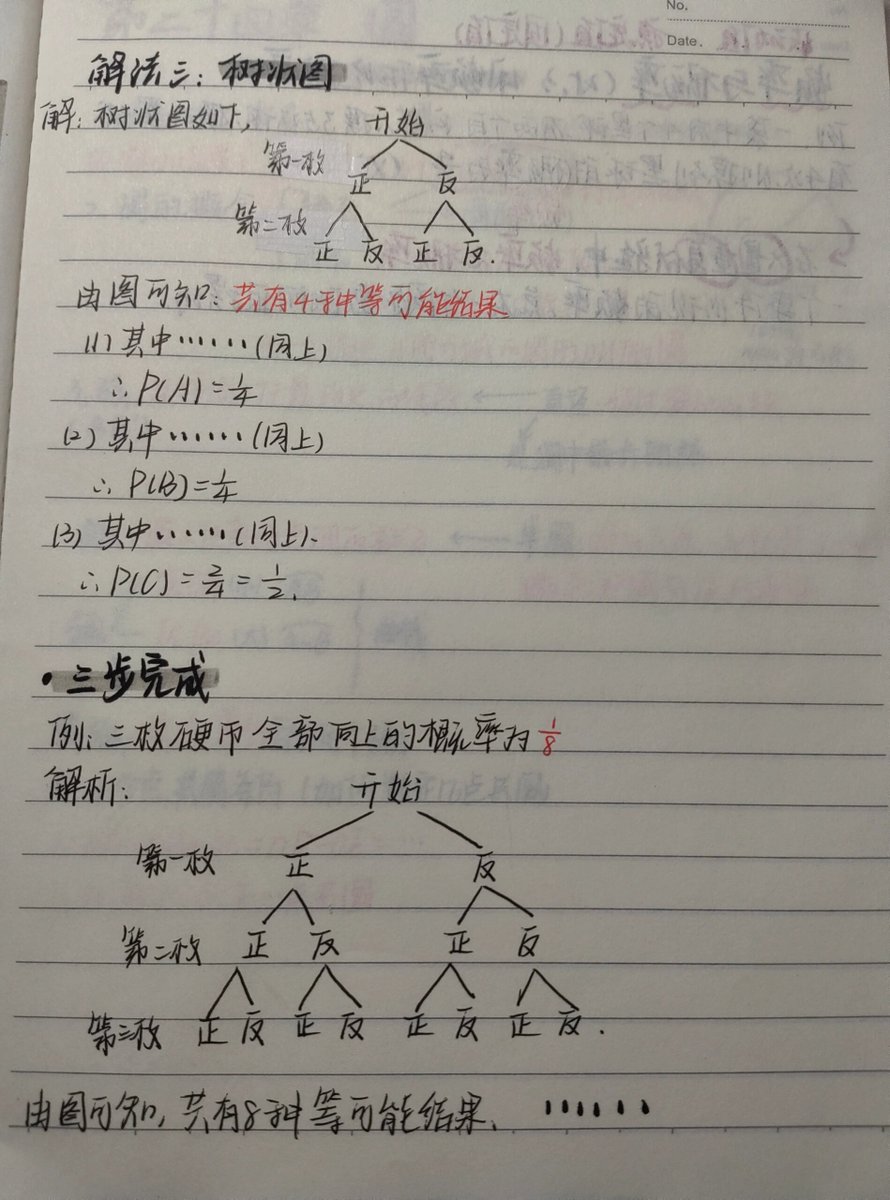 No.
Date.
解法三：树状图
解：树状图如下，
开始
第一枚 正 反
第二枚 正 反 正 反.
由图可知：共有4种等可能结果
(1) 其中……(同上)
∴P(A)=1/4
(2) 其中……(同上)
∴P(B)=1/4
(3) 其中……(同上).
∴P(C)=2/4=1/2.
·三步完成
例：三枚硬币全部向上的概率为1/8
解析：
开始
第一枚 正 反
第二枚 正 反 正 反
第三枚 正 反 正 反 正 反 正 反.
由图可知，共有8种等可能结果、……